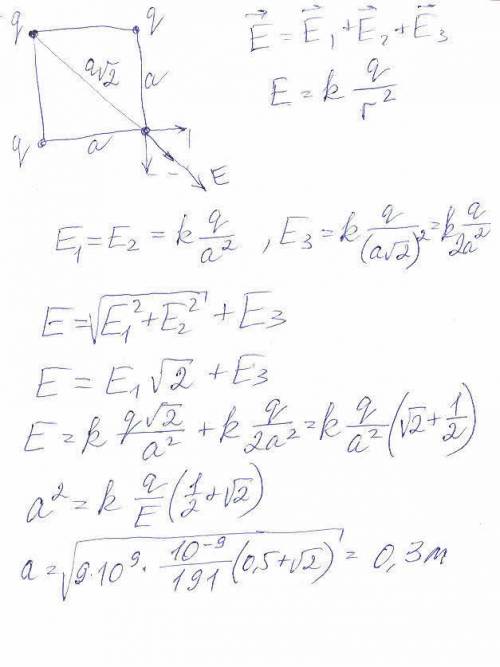 q q
a√2
a
q
a
E
E⃗ = E⃗₁ + E⃗₂ + E⃗₃
E = k q/r²
E₁ = E₂ = k q/a² , E₃ = k q/(a√2)² = k q/2a²
E = √(E₁² + E₂²) + E₃
E = E₁√2 + E₃
E = k q√2/a² + k q/2a² = k q/a² (√2 + 1/2)
a² = k q/E (1/2 + √2)
a = √(9·10⁹ · 10⁻⁹/191 (0,5 + √2)) = 0,3 м